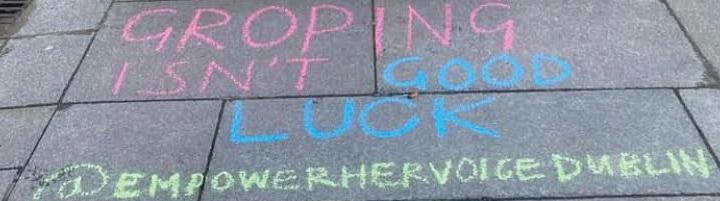 GROPING
ISN'T GOOD
LUCK
@EMPOWERHERVOICEDUBLIN